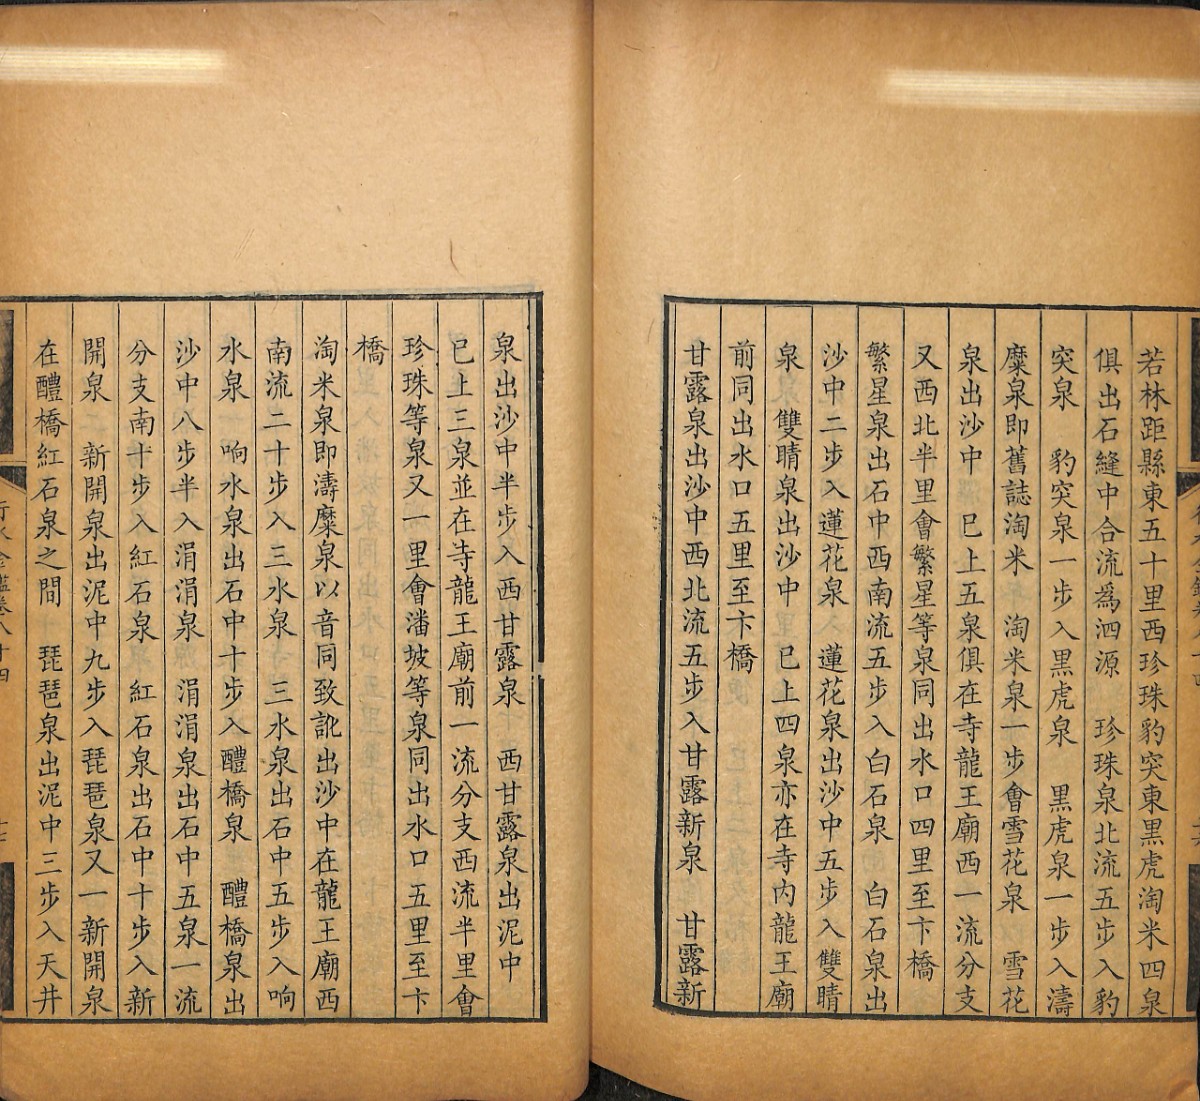 若林距縣東五十里西珍珠豹突東黑虎淘米四泉
俱出石縫中合流為泗源　珍珠泉北流五步入豹
突泉　豹突泉一步入黑虎泉　黑虎泉一步入濤
糜泉即舊誌淘米　淘米泉一步會雪花泉　雪花
泉出沙中　已上五泉俱在寺龍王廟西一流分支
又西北半里會繁星等泉同出水口四里至卞橋
繁星泉出石中西南流五步入白石泉　白石泉出
沙中二步入蓮花泉　蓮花泉出沙中五步入雙睛
泉　雙睛泉出沙中　已上四泉亦在寺內龍王廟
前同出水口五里至卞橋
甘露泉出沙中西北流五步入甘露新泉　甘露新
泉出沙中半步入西甘露泉　西甘露泉出泥中
已上三泉並在寺龍王廟前一流分支西流半里會
珍珠等泉又一里會潘坡等泉同出水口五里至卞
橋
淘米泉即濤糜泉以音同致訛出沙中在龍王廟西
南流二十步入三水泉　三水泉出石中五步入响
水泉　响水泉出石中十步入醴橋泉　醴橋泉出
沙中八步半入涓涓泉　涓涓泉出石中五泉一流
分支南十步入紅石泉　紅石泉出石中十步入新
開泉　新開泉出泥中九步入琵琶泉又一新開泉
在醴橋紅石泉之間　琵琶泉出泥中三步入天井
行水金鑑卷八十四